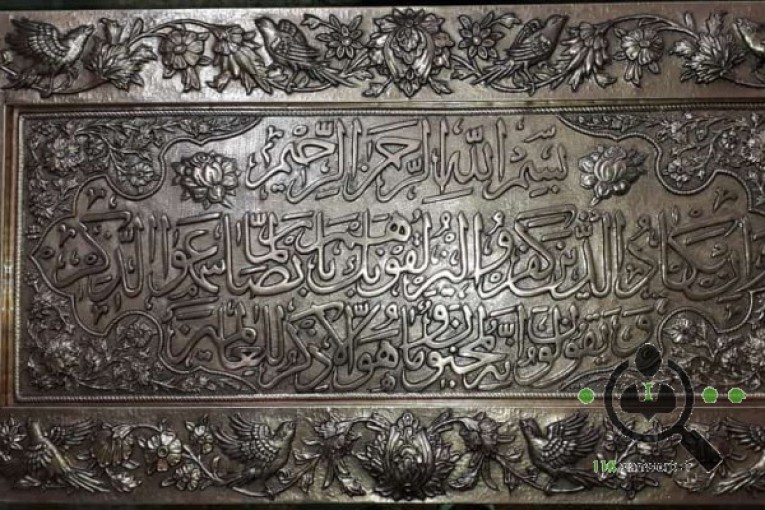 بِسْمِ اللهِ الرَّحْمٰنِ الرَّحِيْمِ
وَاِنْ يَكَادُ الَّذِينَ كَفَرُوا لَيُزْلِقُونَكَ بِاَبْصَارِهِمْ لَمَّا سَمِعُوا الذِّكْرَ
وَيَقُولُونَ اِنَّهُ لَمَجْنُونٌ وَمَا هُوَ اِلَّا ذِكْرٌ لِلْعَالَمِيْنَ